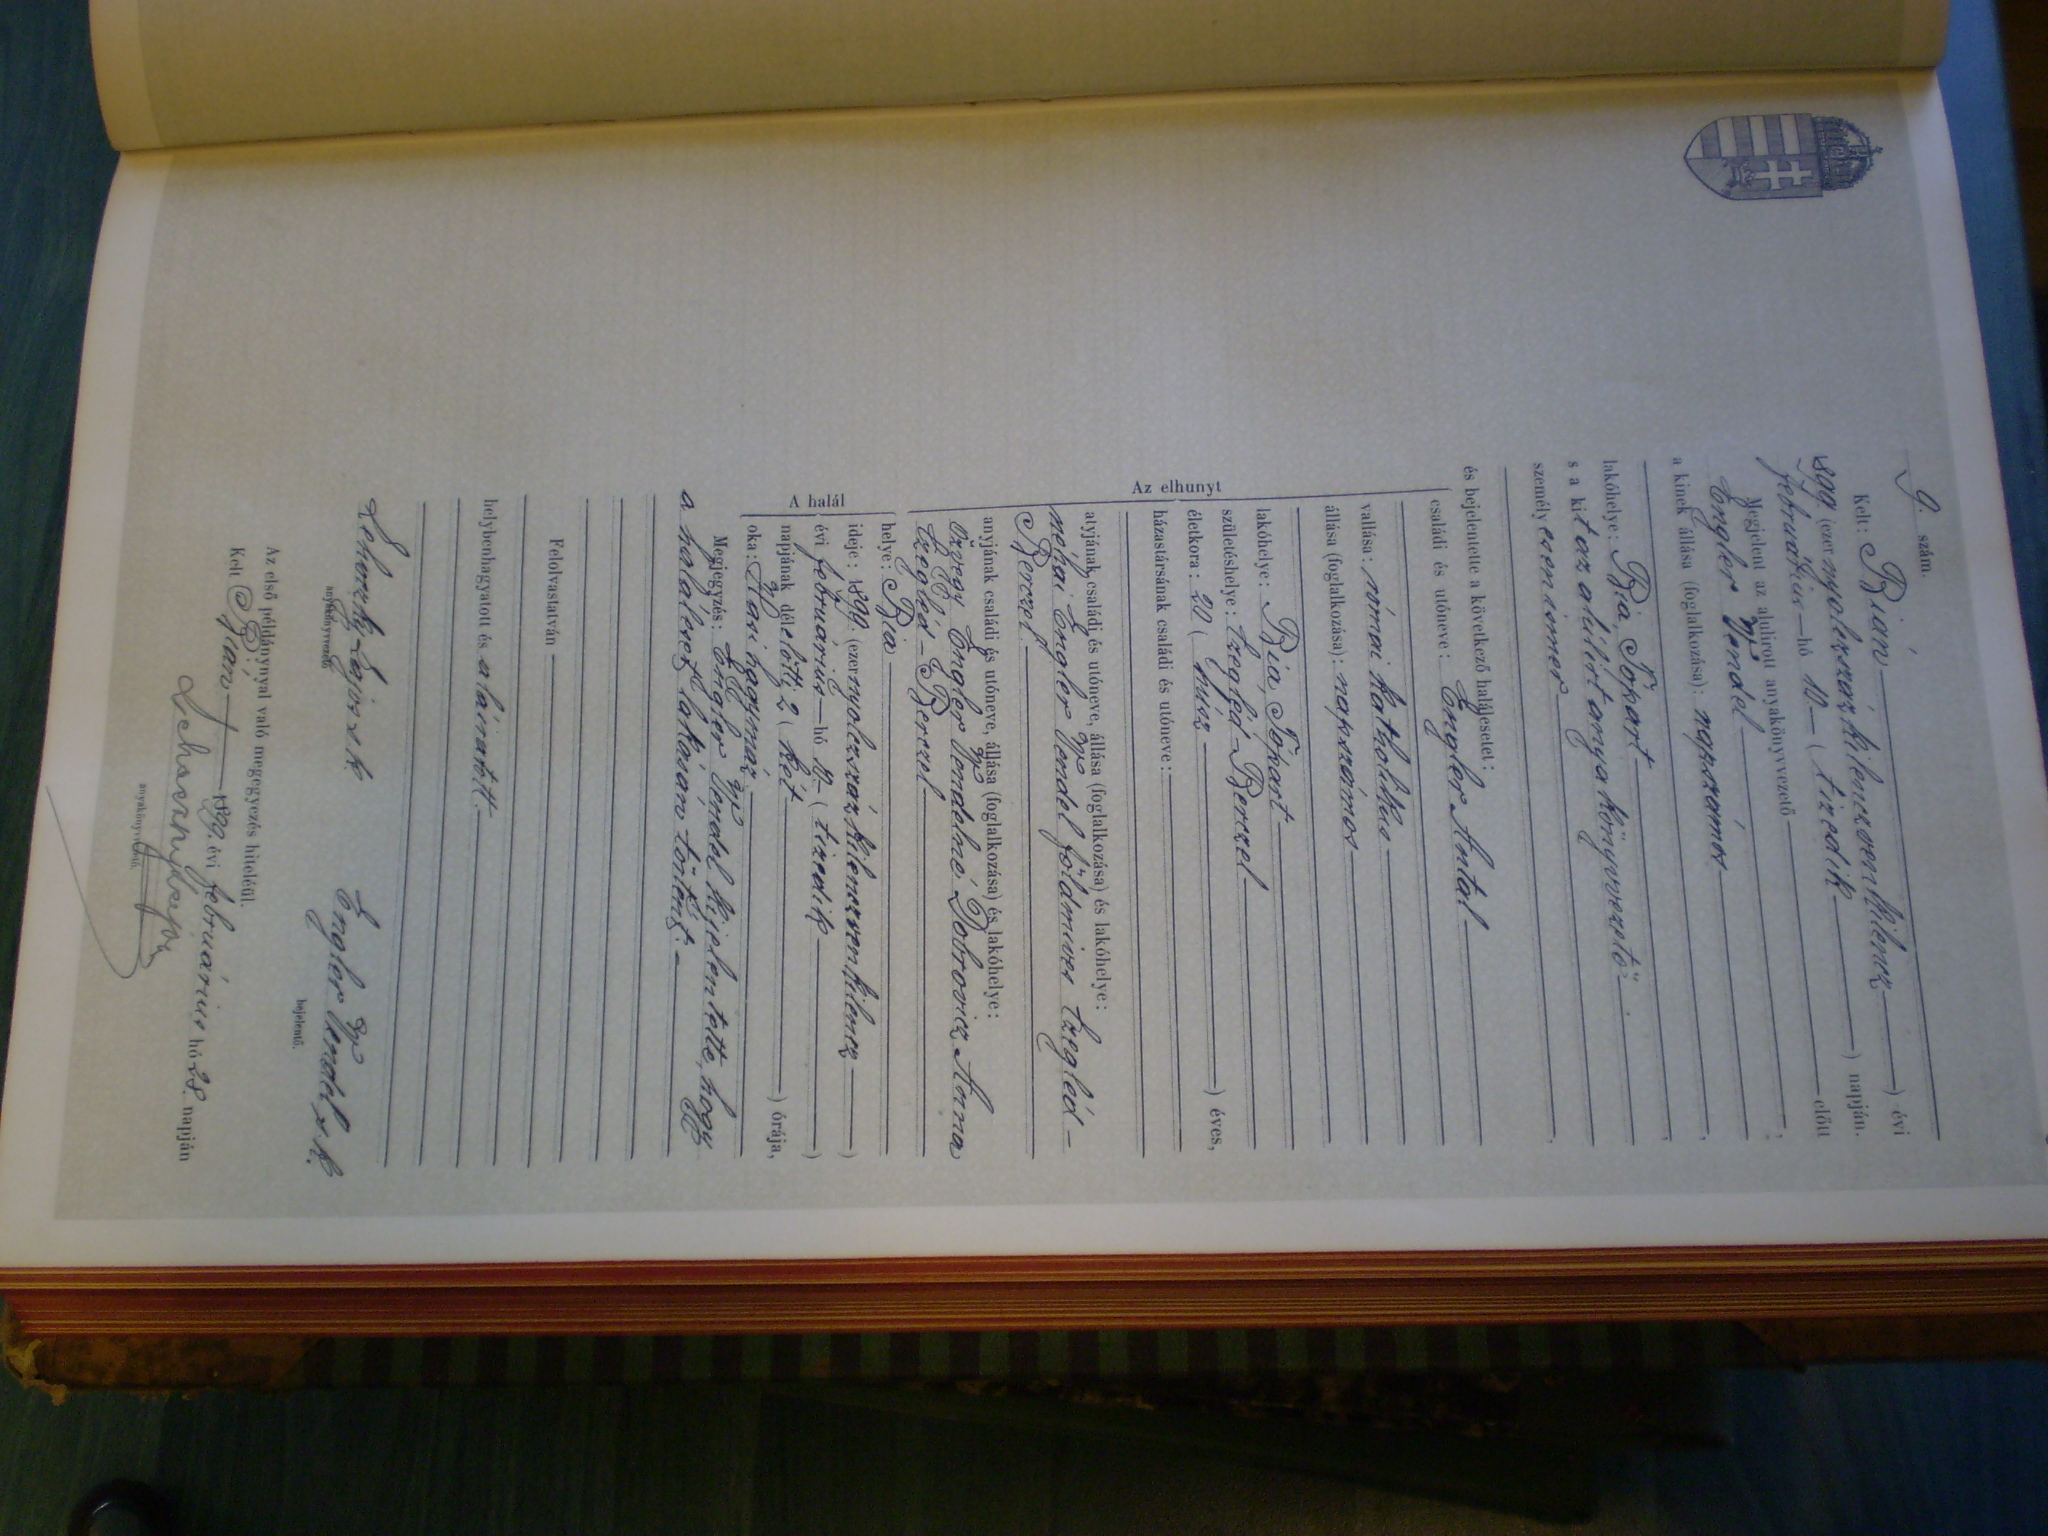 9. szám.
Kelt: Bián ) évi
1899 (ezer nyolczszáz kilenczvenkilencz
februárius hó 10- ( tizedik ) napján.
Megjelent az alulirott anyakönyvvezető előtt
Engler Vendel ,
a kinek állása (foglalkozása): napszámos ,
lakóhelye: Bia, Tópart ,
s a kit az alulirt anyakönyvvezető
személyesen ismer ,
és bejelentette a következő halálesetet:
Az elhunyt
családi és utóneve: Engler Antal
vallása: római katholikus
állása (foglalkozása): napszámos
lakóhelye: Bia, Tópart
születéshelye: Czegléd-Berczel
életkora: 20 ( húsz ) éves,
házastársának családi és utóneve:
atyjának családi és utóneve, állása (foglalkozása) és lakóhelye:
néhai Engler Vendel földmíves Czegléd-
Berczel
anyjának családi és utóneve, állása (foglalkozása) és lakóhelye:
özvegy Engler Vendelné, Dobrovicz Anna
Czegléd-Berczel
A halál
helye: Bia
ideje: 1899. (ezernyolczszáz kilenczvenkilencz )
évi februárius hó 10- ( tizedik )
napjának délelőtti 2 ( két ) órája,
oka: Hasi hagymáz
Megjegyzés: Engler Vendel kijelentette, hogy
a haláleset lakásán történt.-
Felolvastatván
helybenhagyatott és aláiratott.
Lehoczky Lajos s. k. Engler Vendel s. k.
anyakönyvvezető bejelentő.
Az első példánynyal való megegyezés hiteléül.
Kelt Bián 1899. évi februárius hó 28. napján
anyakönyvvezető